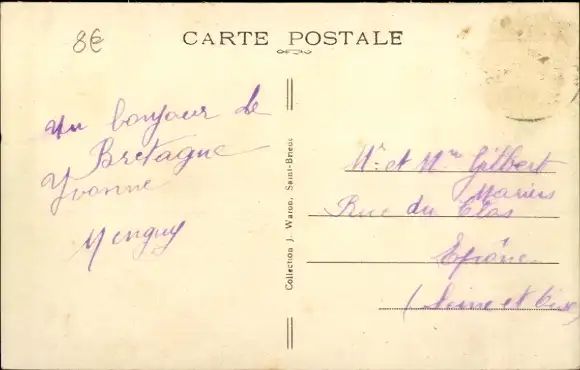 8€
CARTE POSTALE
Un bonjour de
Bretagne
Yvonne
Collection J. Waron, Saint-Brieuc
Mr et Mme Gilbert
Rue du Clos
Epône
(Seine et Oise)